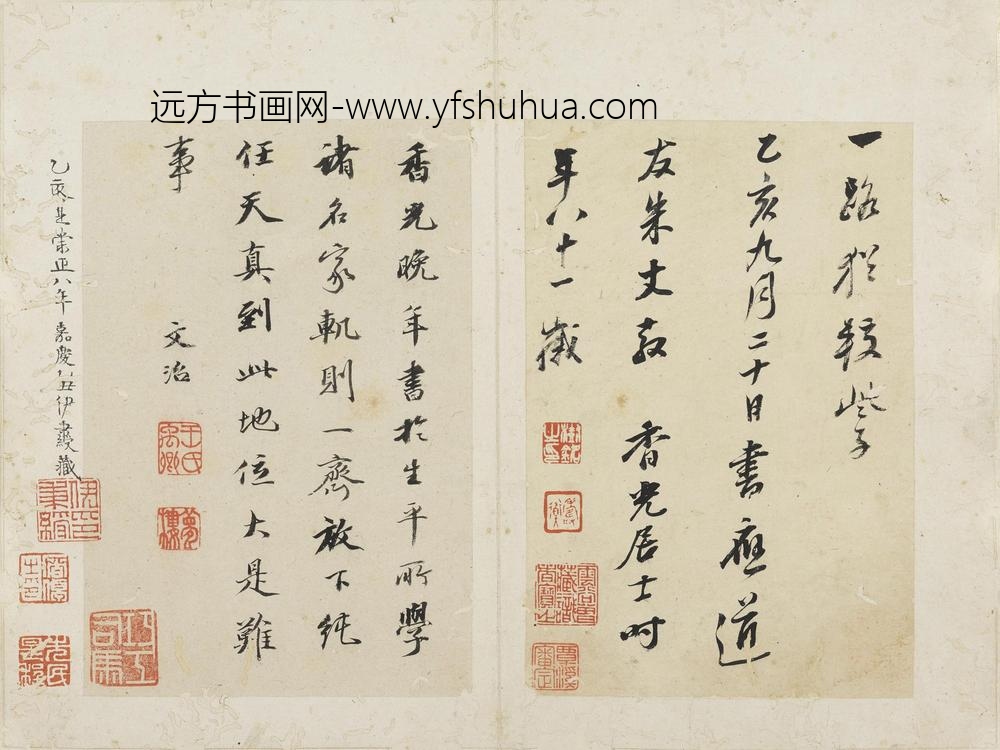 远方书画网-www.yfshuhua.com
一路猶較些子
乙亥九月二十日書應道
友朱丈教 香光居士时
年八十一歲
香光晚年書於生平所學
諸名家軌則一齊放下純
任天真到此地位大是難
事
文治
王氏禹卿
夢樓
乙亥是崇正八年嘉慶乙丑伊秉綬藏